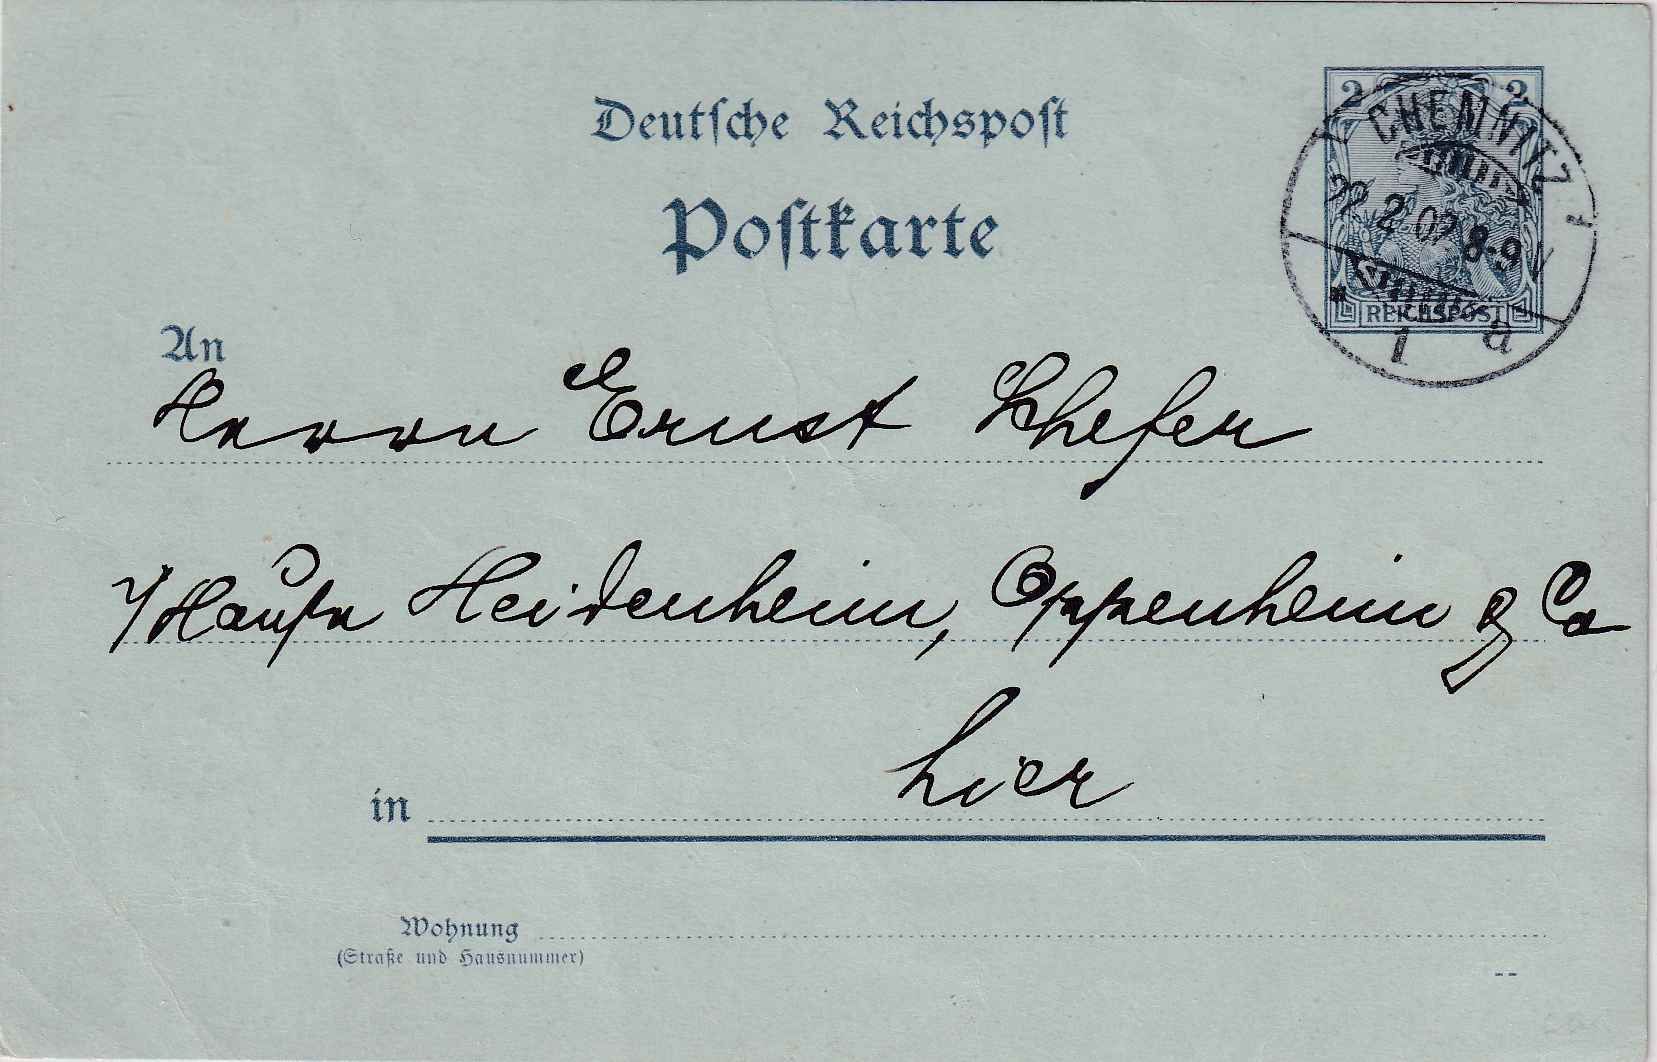 Deutsche Reichspost
Postkarte
2 2
REICHSPOST
CHEMNITZ 1
22 2 02 8-9 V
* 1 a
An
Herrn Ernst Schefer
Heidenheim, Oppenheim & Co
hier
in
Wohnung
(Straße und Hausnummer)